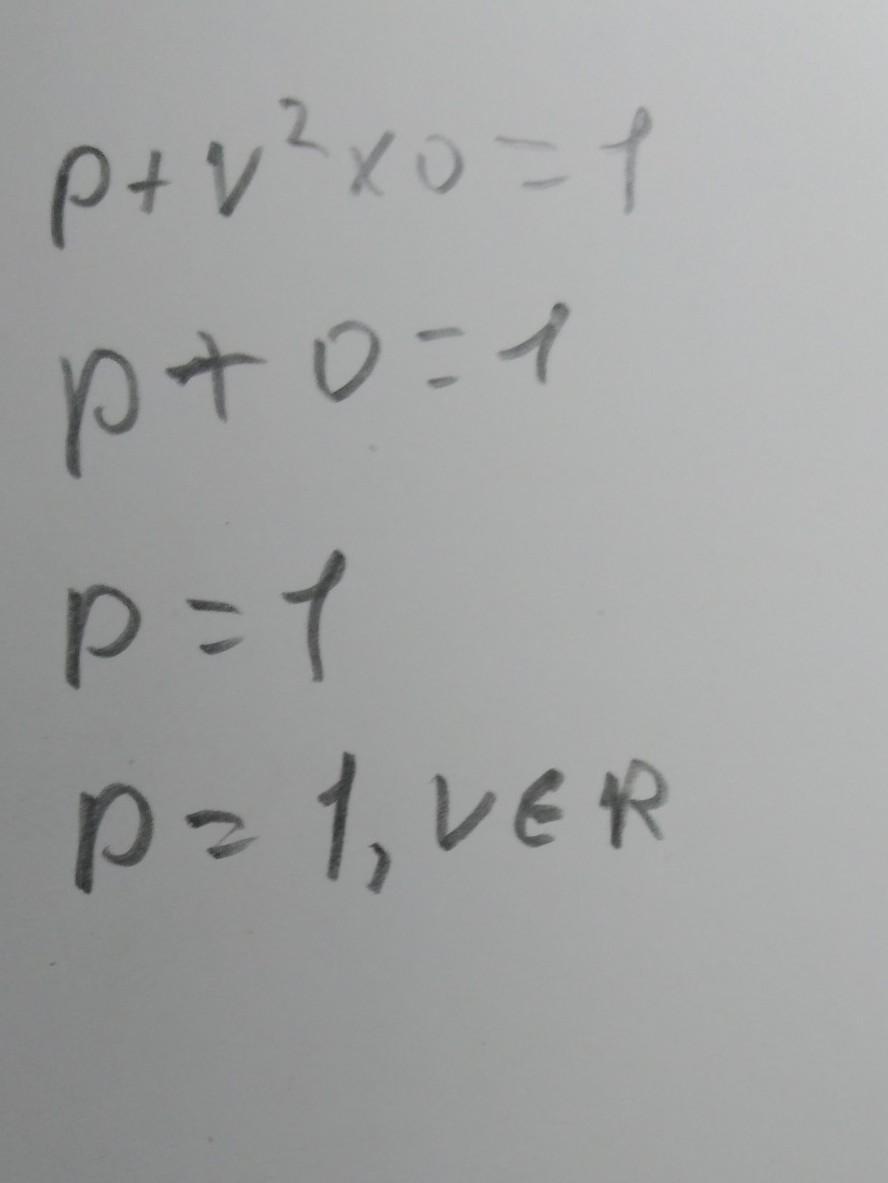 p+v²×0=1
p+0=1
p=1
p=1, v∈R